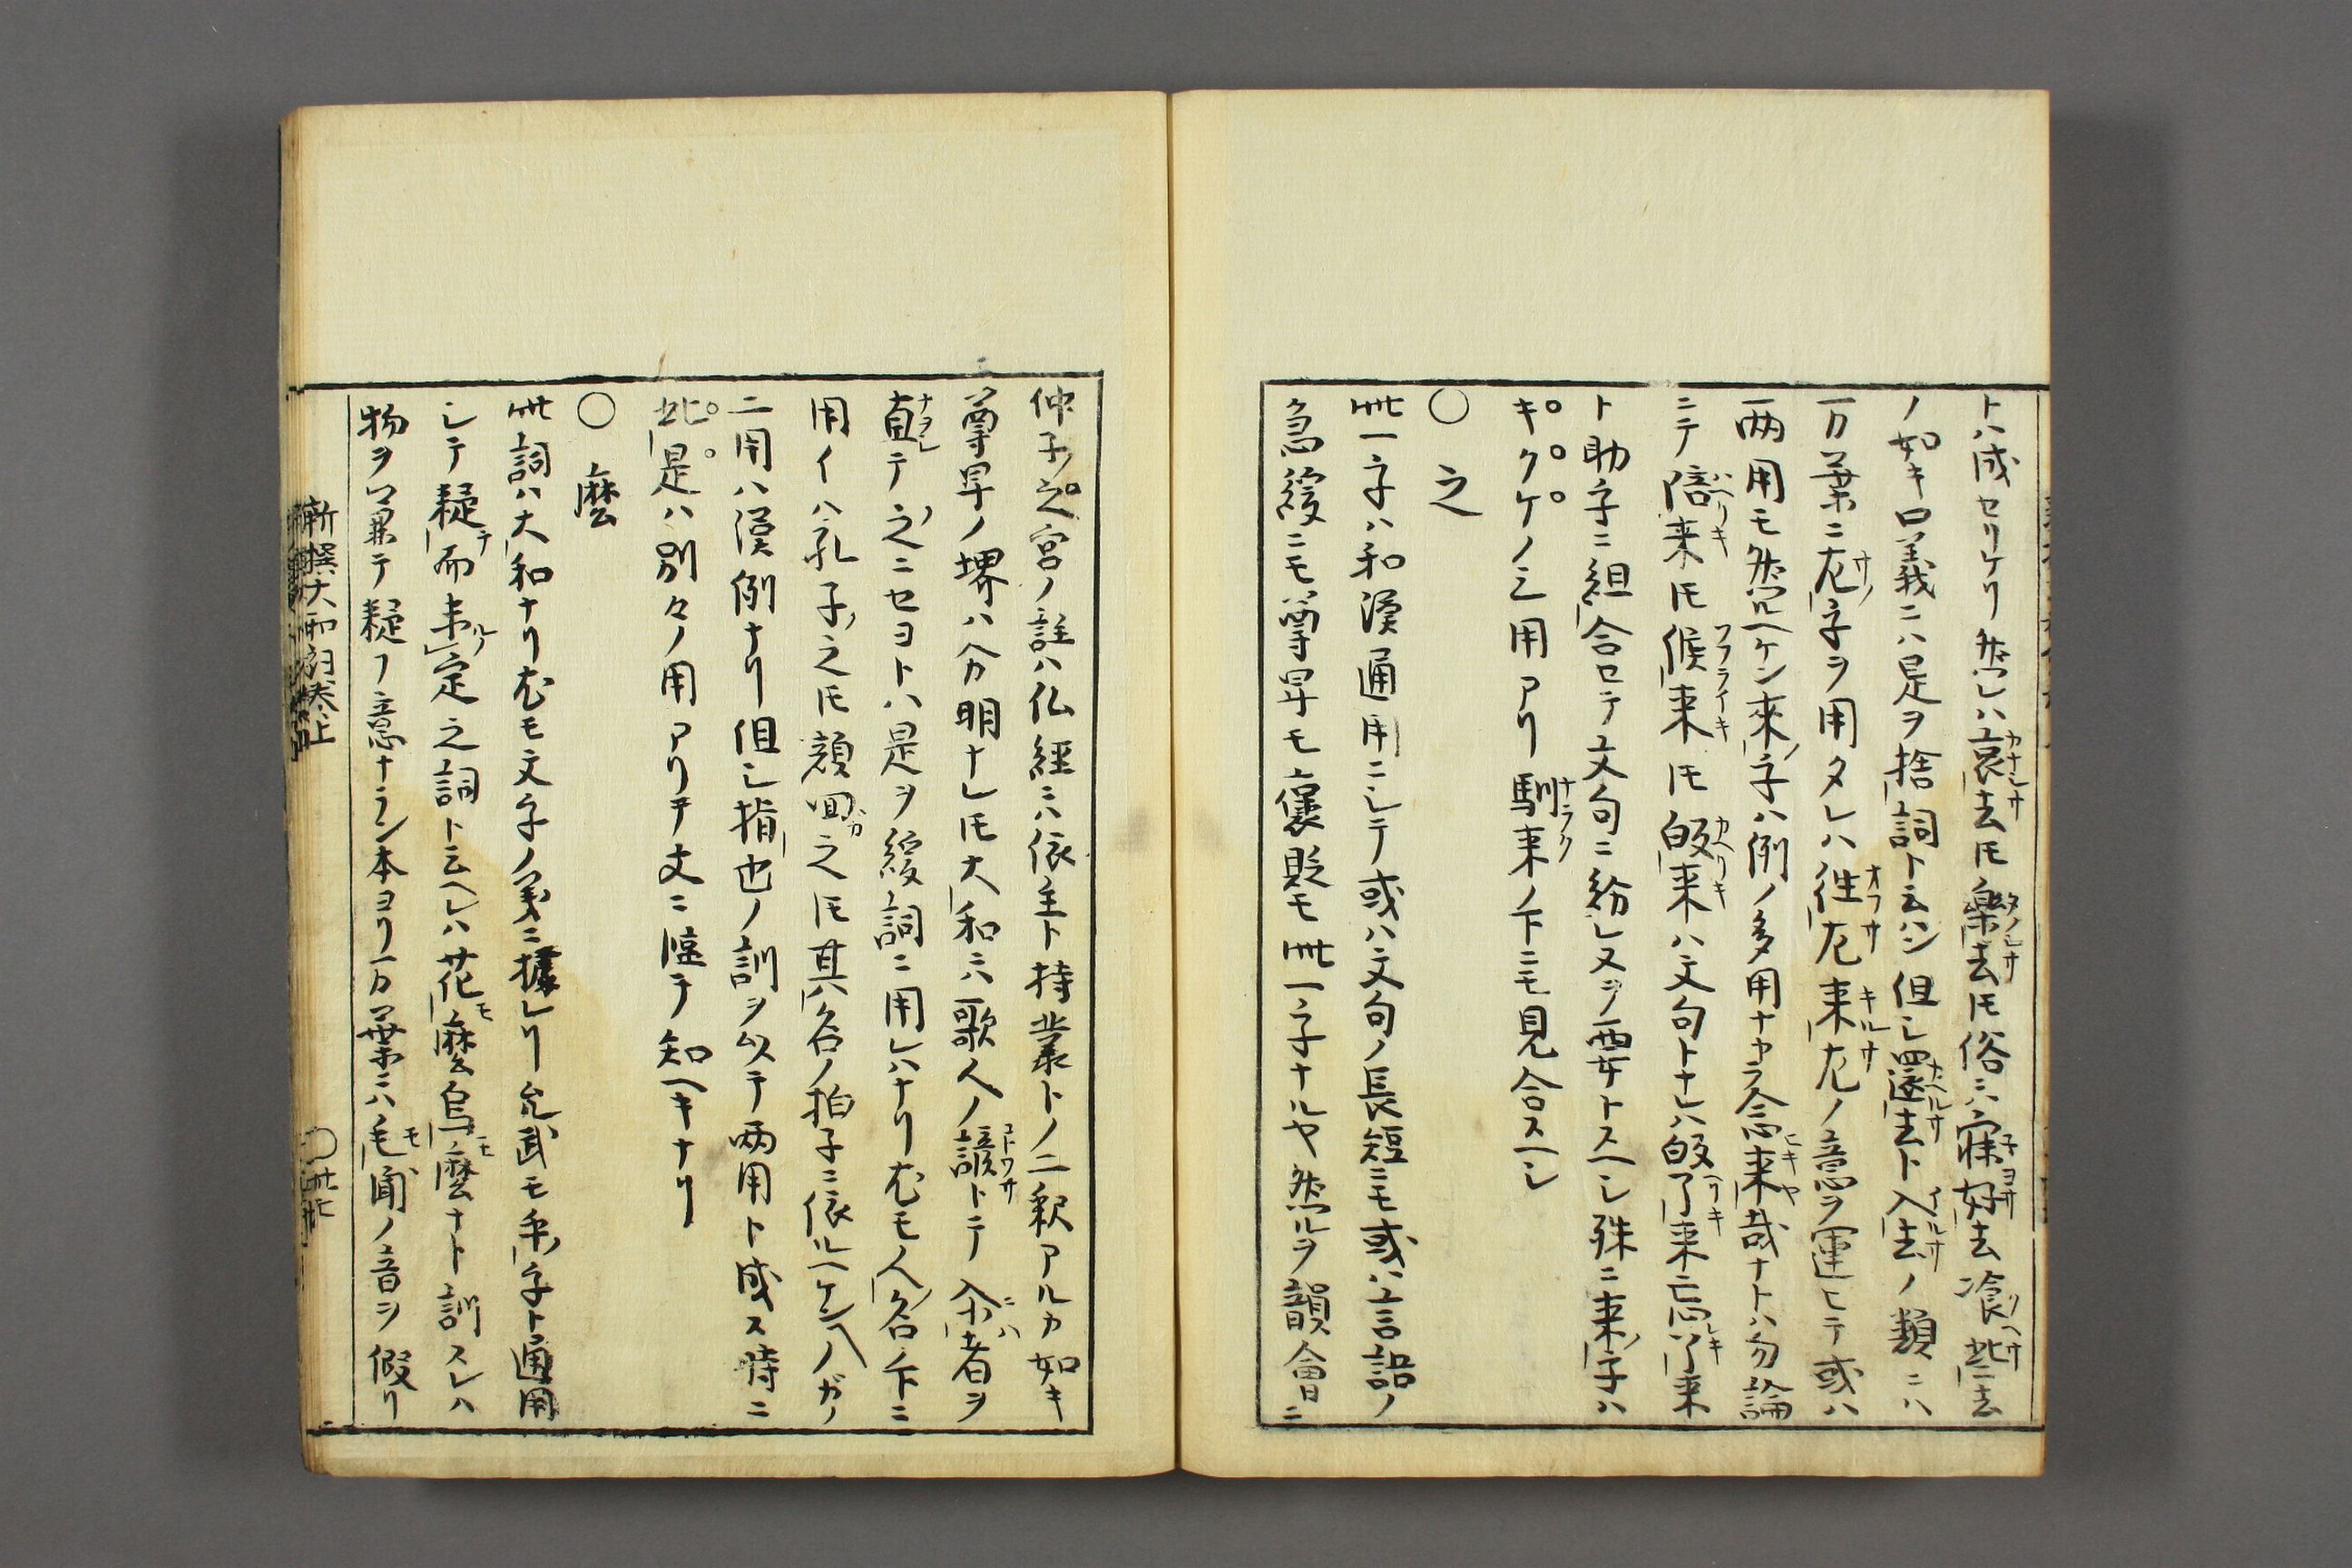 トハ成セリケリ然レハ哀去ㇳモ樂去ㇳモ俗ニハ寐好去飡些去
ノ如キロ義ニハ是ヲ捨詞ト云ハン但シ還去ト入去ノ類ニハ
万葉ニ尢字ヲ用タレハ徃尢来尢ノ意ヲ運ヒテ或ハ
両用モ然ルヘケン來字ハ例ノ多用ナカラ念来哉ナトハ勿論
ニテ陪来ㇳモ候来ㇳモ皈来ハ文句トナレハ皈了来忘了来
ト助字ニ組合セテ文句ニ紛レヌヲ要トスヘシ殊ニ来字ハ
キクケノ三用アリ馴来ノ下ニモ見合スヘシ
○ 之
此一字ハ和漢通用ニシテ或ハ文句ノ長短ニモ或ハ言語ノ
急緩ニモ尊卑モ褒貶モ此一字ナルヤ然ルヲ韻會ニ
仲子之宮ノ註ハ仏經ニハ依主ト持業トノ二釈アルカ如キ
尊卑ノ堺ハ分明ナレㇳモ大和ニハ歌人ノ諺トテ余者ヲ
直テ之ニセヨトハ是ヲ緩詞ニ用レハナリ尢モ人名ノ下ニ
用イハ孔子之ㇳモ顔回之ㇳモ其名ノ拍子ニ依ルヘケン
二用ハ漢例ナリ但シ指也ノ訓ヲ以テ両用ト成ス時ニ
此是ハ別々ノ用アリヲ文ニ臨テ知ヘキナリ
○ 麼
此詞ハ大和ナリ尢モ文字ノ義ニ據レリ允武モ乎字ト通用
シテ疑而未定之詞ト云ヘレハ花麼鳥麼ナト訓スレハ
物ヲ兼テ疑ノ意ナラン本ヨリ万葉ニハ毛聞ノ音ヲ假リ
新撰大和詞卷上